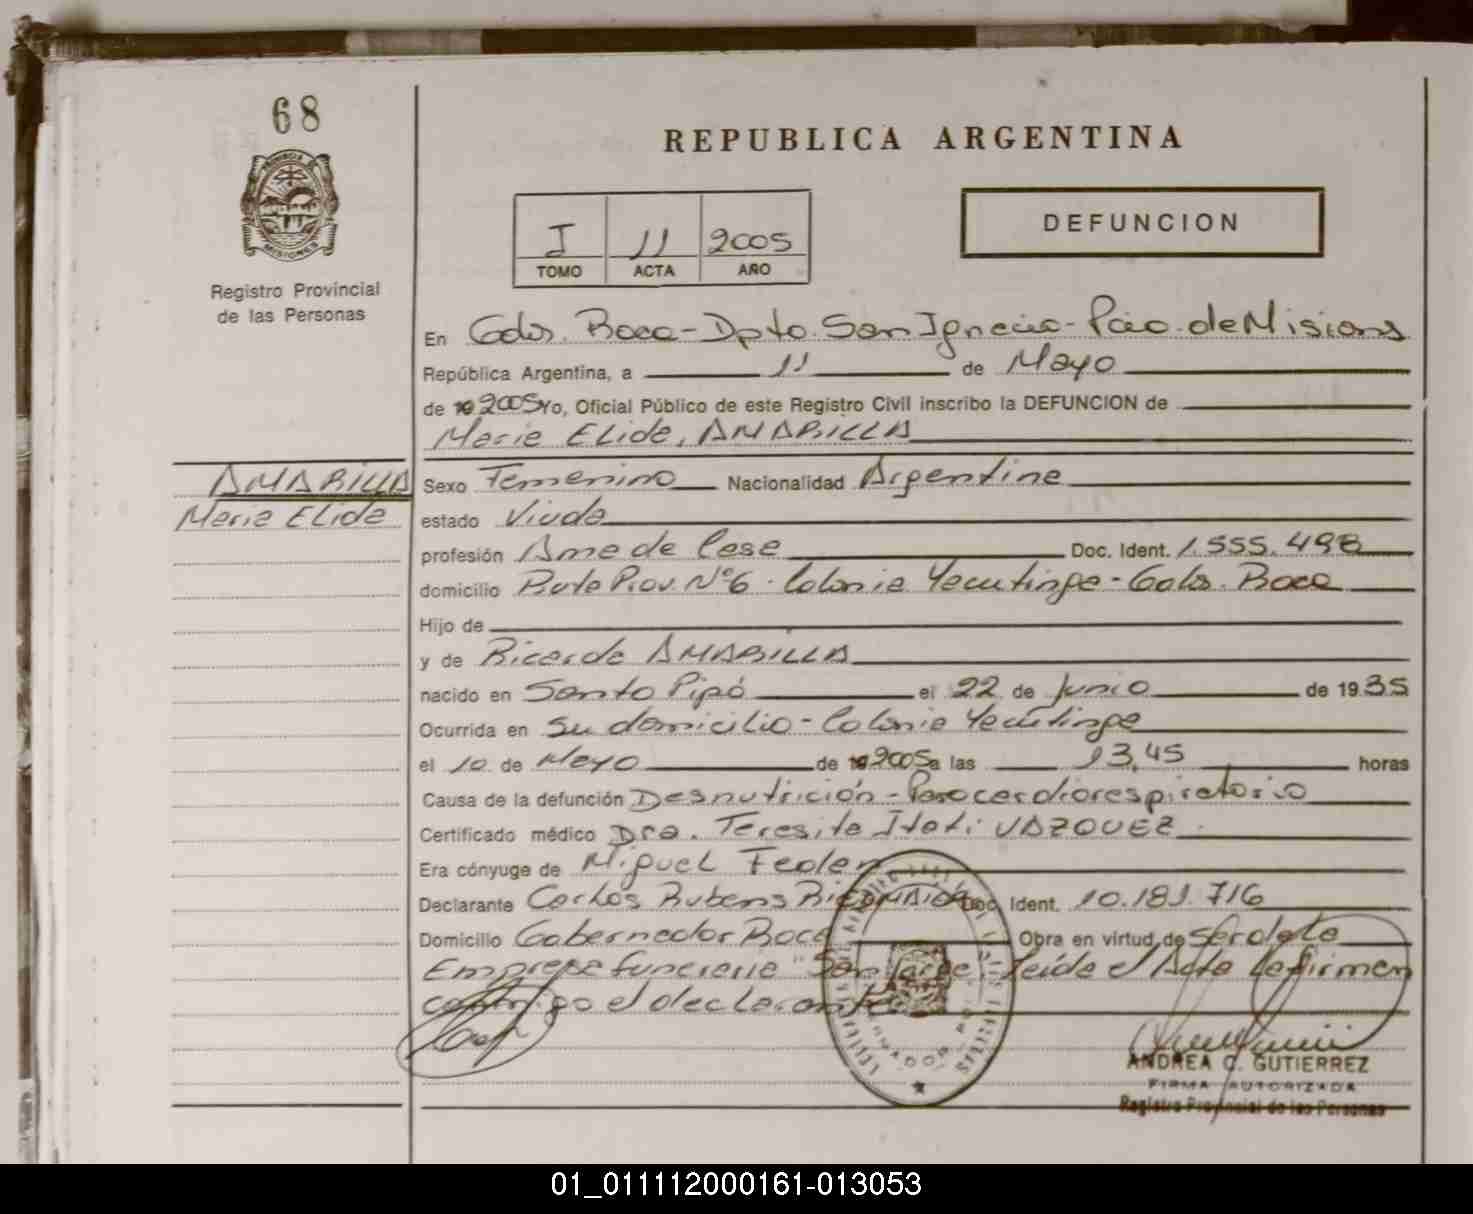 68
PROVINCIA DE
MISIONES
Registro Provincial
de las Personas
REPUBLICA ARGENTINA
I 11 2005
TOMO ACTA AÑO
DEFUNCION
En Gdor. Roca - Dpto. San Ignacio - Pcia. de Misiones
República Argentina, a 11 de Mayo
de 19 2005 Yo, Oficial Público de este Registro Civil inscribo la DEFUNCION de
Maria Elida, AMARILLA
AMARILLA
Maria Elida
Sexo Femenino Nacionalidad Argentina
estado Viuda
profesión Ama de Casa Doc. Ident. 1.555.498
domicilio Ruta Prov. Nº 6 - Colonia Yacutinga - Gdor. Roca
Hijo de
y de Ricardo AMARILLA
nacido en Santo Pipó el 22 de Junio de 1935
Ocurrida en su domicilio - Colonia Yacutinga
el 10 de Mayo de 19 2005 a las 13,45 horas
Causa de la defunción Desnutrición - Parocardiorespiratorio
Certificado médico Dra. Teresita Itati VAZQUEZ
Era cónyuge de Miguel
Declarante Carlos Rubens Doc. Ident. 10.181.716
Domicilio Gobernador Roca Obra en virtud de ser de la
Empresa funeraria "San Jorge". Leída el Acta la firman
conmigo el declarante
ANDREA C. GUTIERREZ
FIRMA AUTORIZADA
Registro Provincial de las Personas
01_011112000161-013053